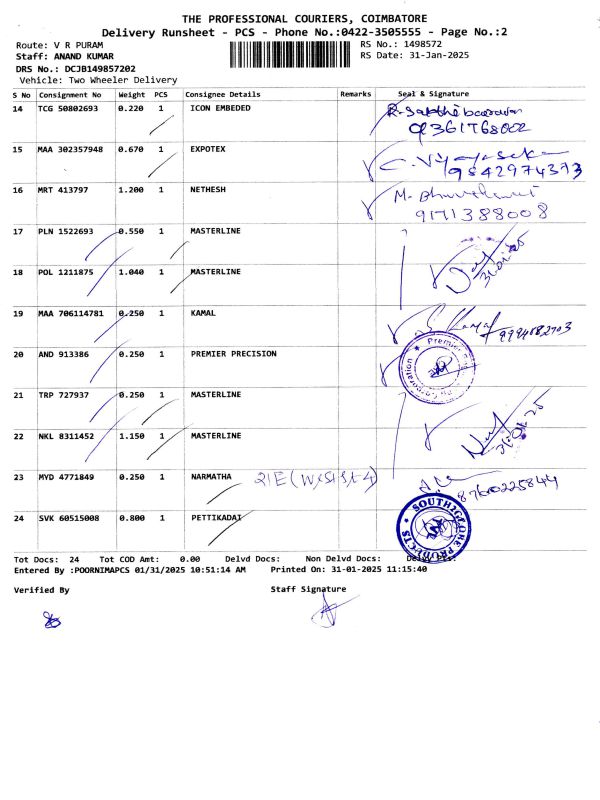 THE PROFESSIONAL COURIERS, COIMBATORE
Delivery Runsheet - PCS - Phone No.:0422-3505555 - Page No.:2
Route: V R PURAM RS No.: 1498572
Staff: ANAND KUMAR RS Date: 31-Jan-2025
DRS No.: DCJB149857202
Vehicle: Two Wheeler Delivery
S No Consignment No Weight PCS Consignee Details Remarks Seal & Signature
14 TCG 50802693 0.220 1 ICON EMBEDED
9361768002
15 MAA 302357948 0.670 1 EXPOTEX
9842974373
16 MRT 413797 1.200 1 NETHESH M.
9171388008
17 PLN 1522693 0.550 1 MASTERLINE
18 POL 1211875 1.040 1 MASTERLINE
19 MAA 706114781 0.250 1 KAMAL Kamal
20 AND 913386 0.250 1 PREMIER PRECISION Premier
21 TRP 727937 0.250 1 MASTERLINE
22 NKL 8311452 1.150 1 MASTERLINE
23 MYD 4771849 0.250 1 NARMATHA
8760225844
24 SVK 60515008 0.800 1 PETTIKADAI
Tot Docs: 24 Tot COD Amt: 0.00 Delvd Docs: Non Delvd Docs:
Entered By :POORNIMAPCS 01/31/2025 10:51:14 AM Printed On: 31-01-2025 11:15:40
Verified By Staff Signature